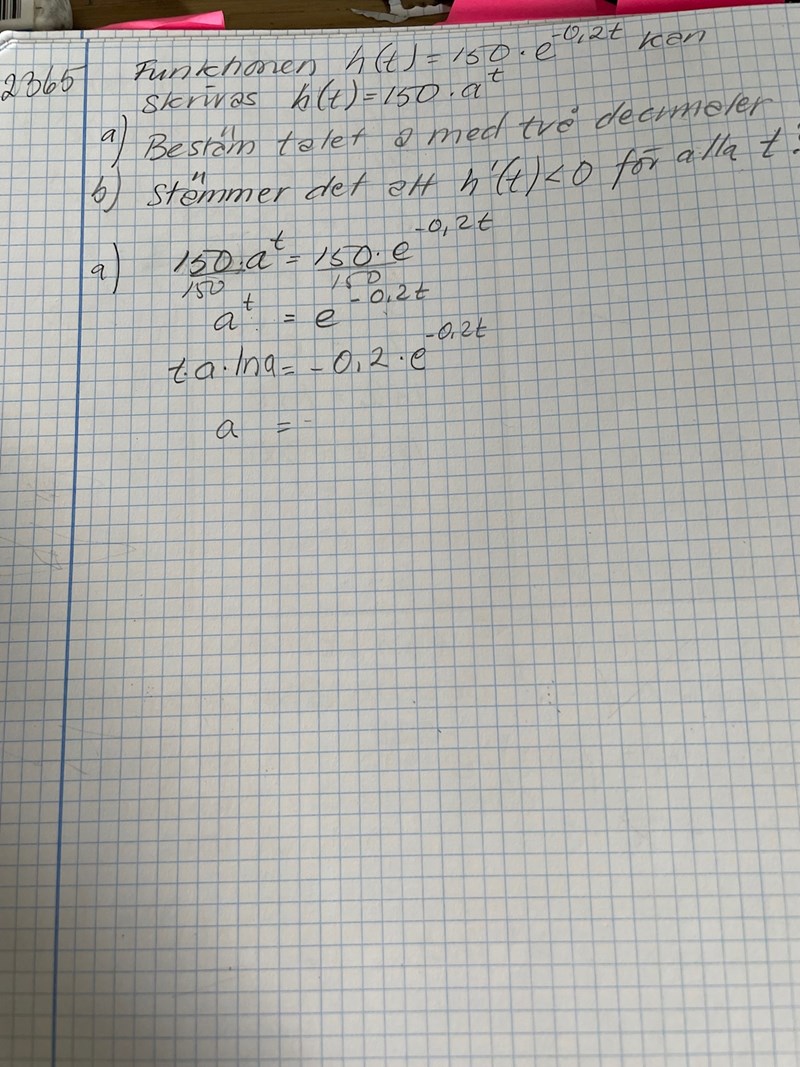 2365 Funktionen h(t) = 150 · e^-0,2t kan
skrivas h(t) = 150 · a^t
a) Bestäm talet a med två decimaler
b) Stämmer det att h'(t) < 0 för alla t?
a) 150 · a^t / 150 = 150 · e^-0,2t / 150
a^t = e^-0,2t
t · a · ln a = -0,2 · e^-0,2t
a = -